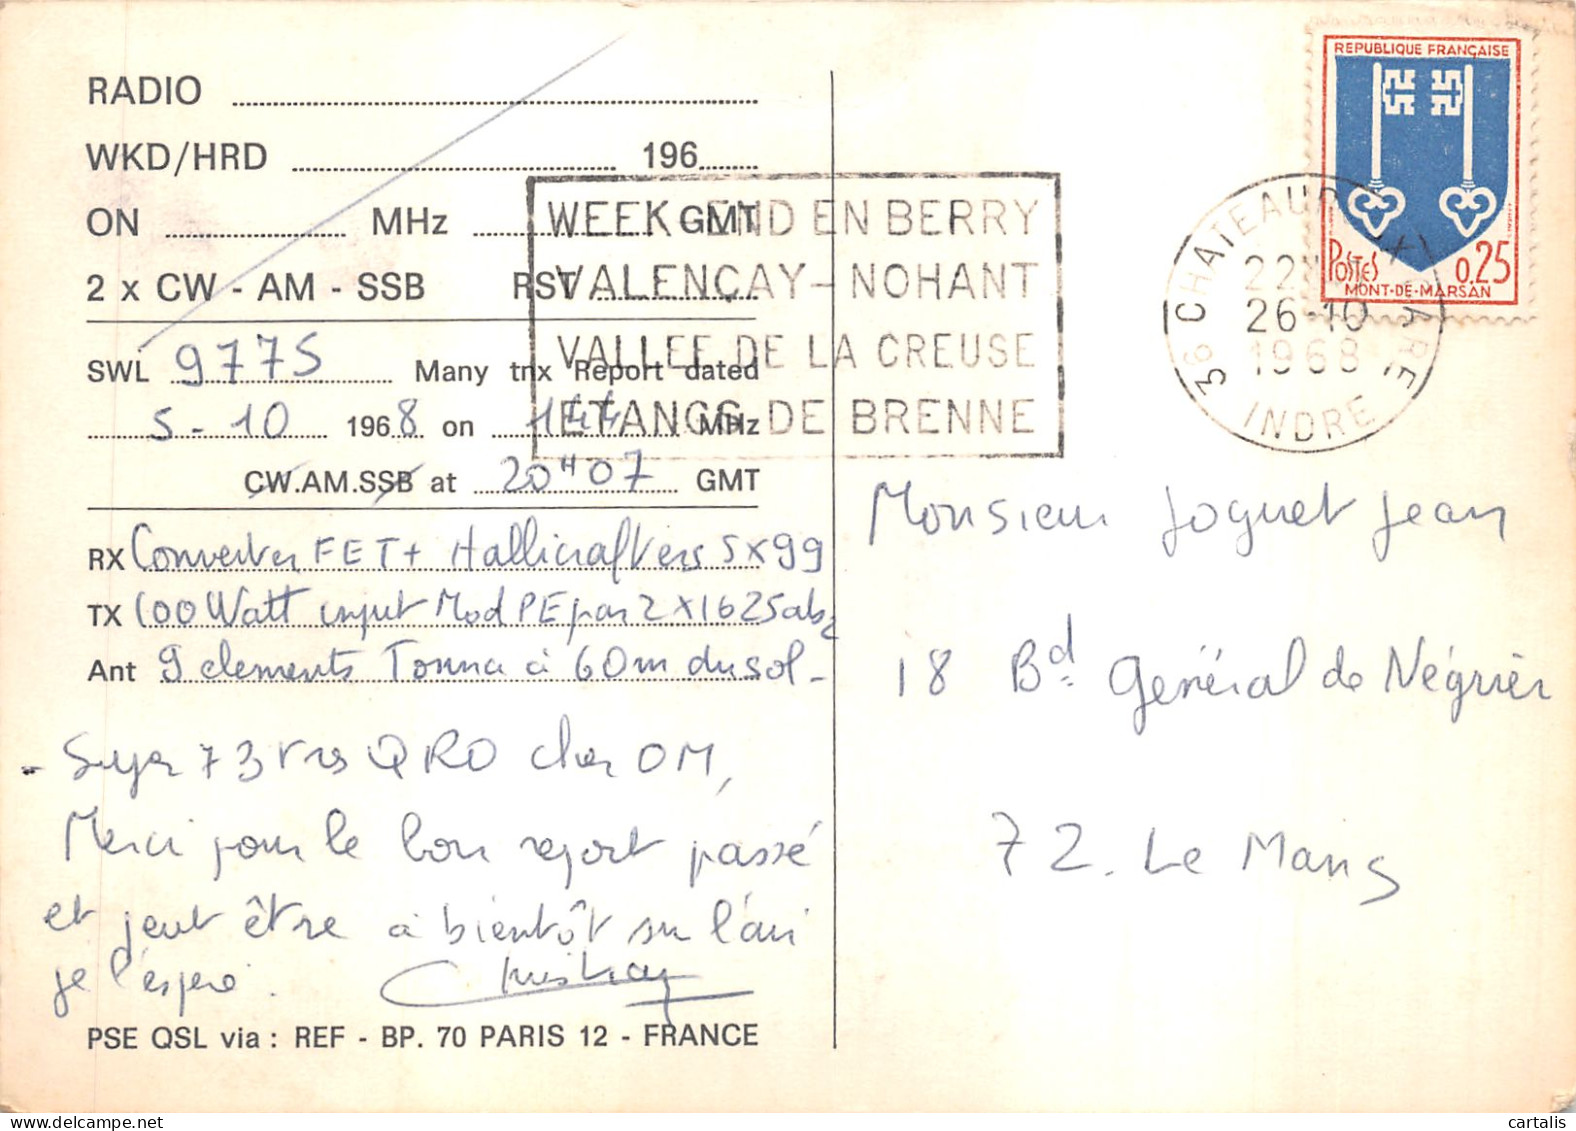 RADIO
WKD/HRD 196
ON MHz GMT
2 x CW - AM - SSB RST
SWL 9775 Many tnx Report dated
5-10 1968 on 144 MHz
CW.AM.SSB at 20H07 GMT
RX Converter FET+ Hallicrafters SX99
TX 100 Watt input Mod PE par 2x1625 ab2
Ant 9 elements Tonna à 60m du sol-
- Super 73 très QRO cher OM,
Merci pour le bon report passé
et peut être à bientôt sur l'air
je l'espère.
PSE QSL via : REF - BP. 70 PARIS 12 - FRANCE
WEEK-END EN BERRY
VALENÇAY - NOHANT
VALLEE DE LA CREUSE
ETANGS DE BRENNE
36 CHATEAUROUX GARE
26-10
1968
INDRE
REPUBLIQUE FRANÇAISE
POSTES 0,25
MONT-DE-MARSAN
Monsieur Joguet Jean
18 Bd. Général de Négrier
72. Le Mans
cartalis